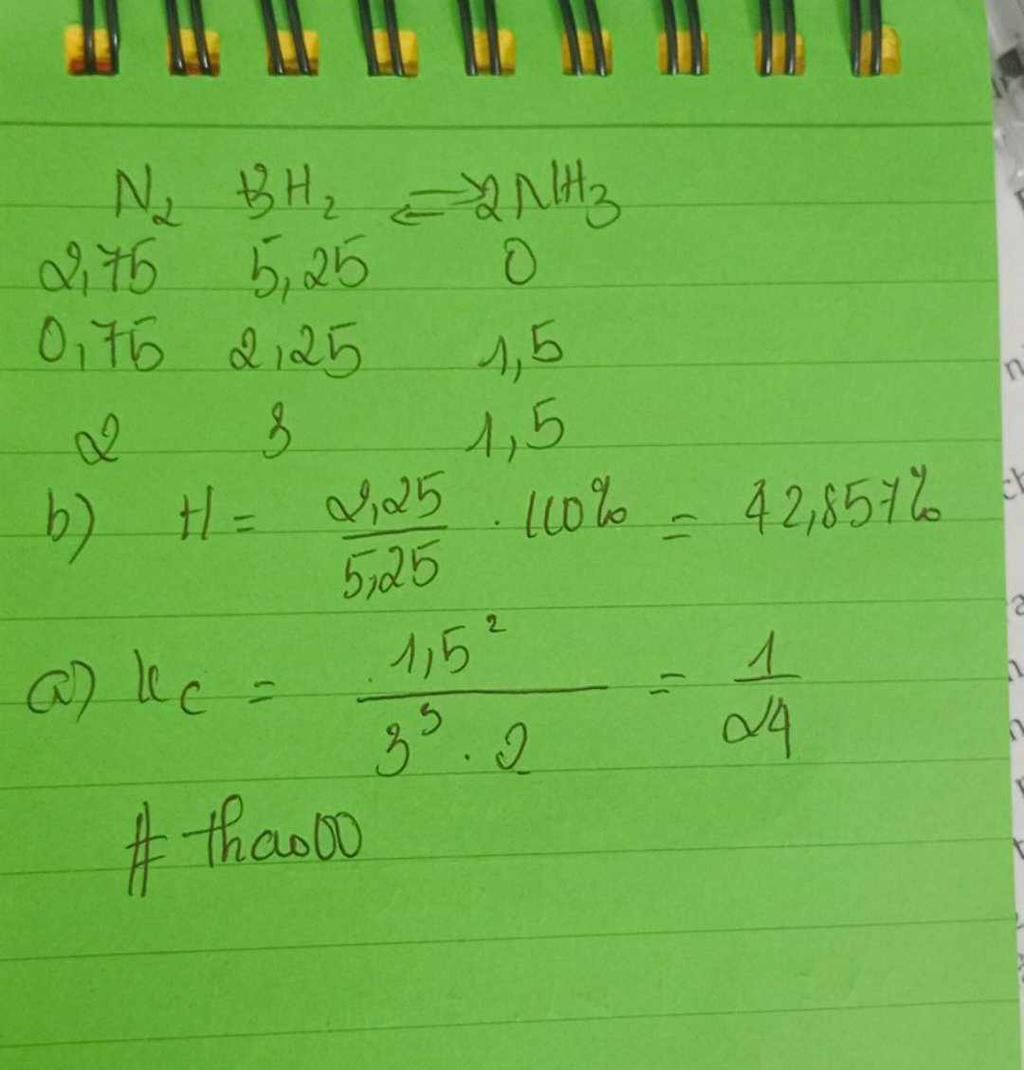 N₂ + 3H₂ ⇌ 2NH₃
2,75 5,25 0
0,75 2,25 1,5
2 3 1,5
b) H = 2,25/5,25 . 100% = 42,857%
a) Kc = 1,5²/3³ . 2 = 1/24
# thaoOO